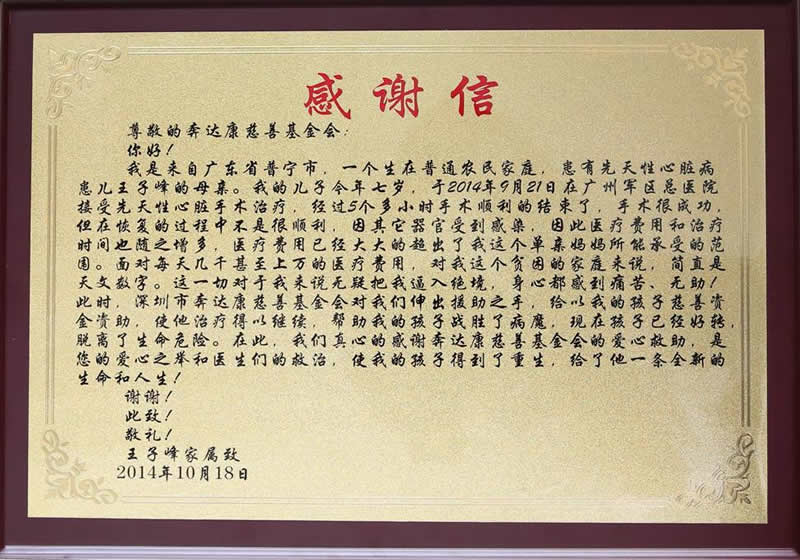 感谢信
尊敬的奔达康慈善基金会：
你好！
我是来自广东省普宁市，一个生在普通农民家庭，患有先天性心脏病
患儿王子峰的母亲。我的儿子今年七岁，于2014年9月21日在广州军区总医院
接受先天性心脏手术治疗，经过5个多小时手术顺利的结束了，手术很成功，
但在恢复的过程中不是很顺利，因其它器官受到感染，因此医疗费用和治疗
时间也随之增多，医疗费用已经大大的超出了我这个单亲妈妈所能承受的范
围。面对每天几千甚至上万的医疗费用，对我这个贫困的家庭来说，简直是
天文数字。这一切对于我来说无疑把我逼入绝境，身心都感到痛苦、无助！
此时，深圳市奔达康慈善基金会对我们伸出援助之手，给以我的孩子慈善资
金资助，使他治疗得以继续，帮助我的孩子战胜了病魔，现在孩子已经好转，
脱离了生命危险。在此，我们真心的感谢奔达康慈善基金会的爱心救助，是
您的爱心之举和医生们的救治，使我的孩子得到了重生，给了他一条全新的
生命和人生！
谢谢！
此致！
敬礼！
王子峰家属致
2014年10月18日